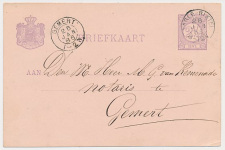 GEMERT
BRIEFKAART
AAN
Den Heer M. G. van Hemmende
notaris te
Gemert